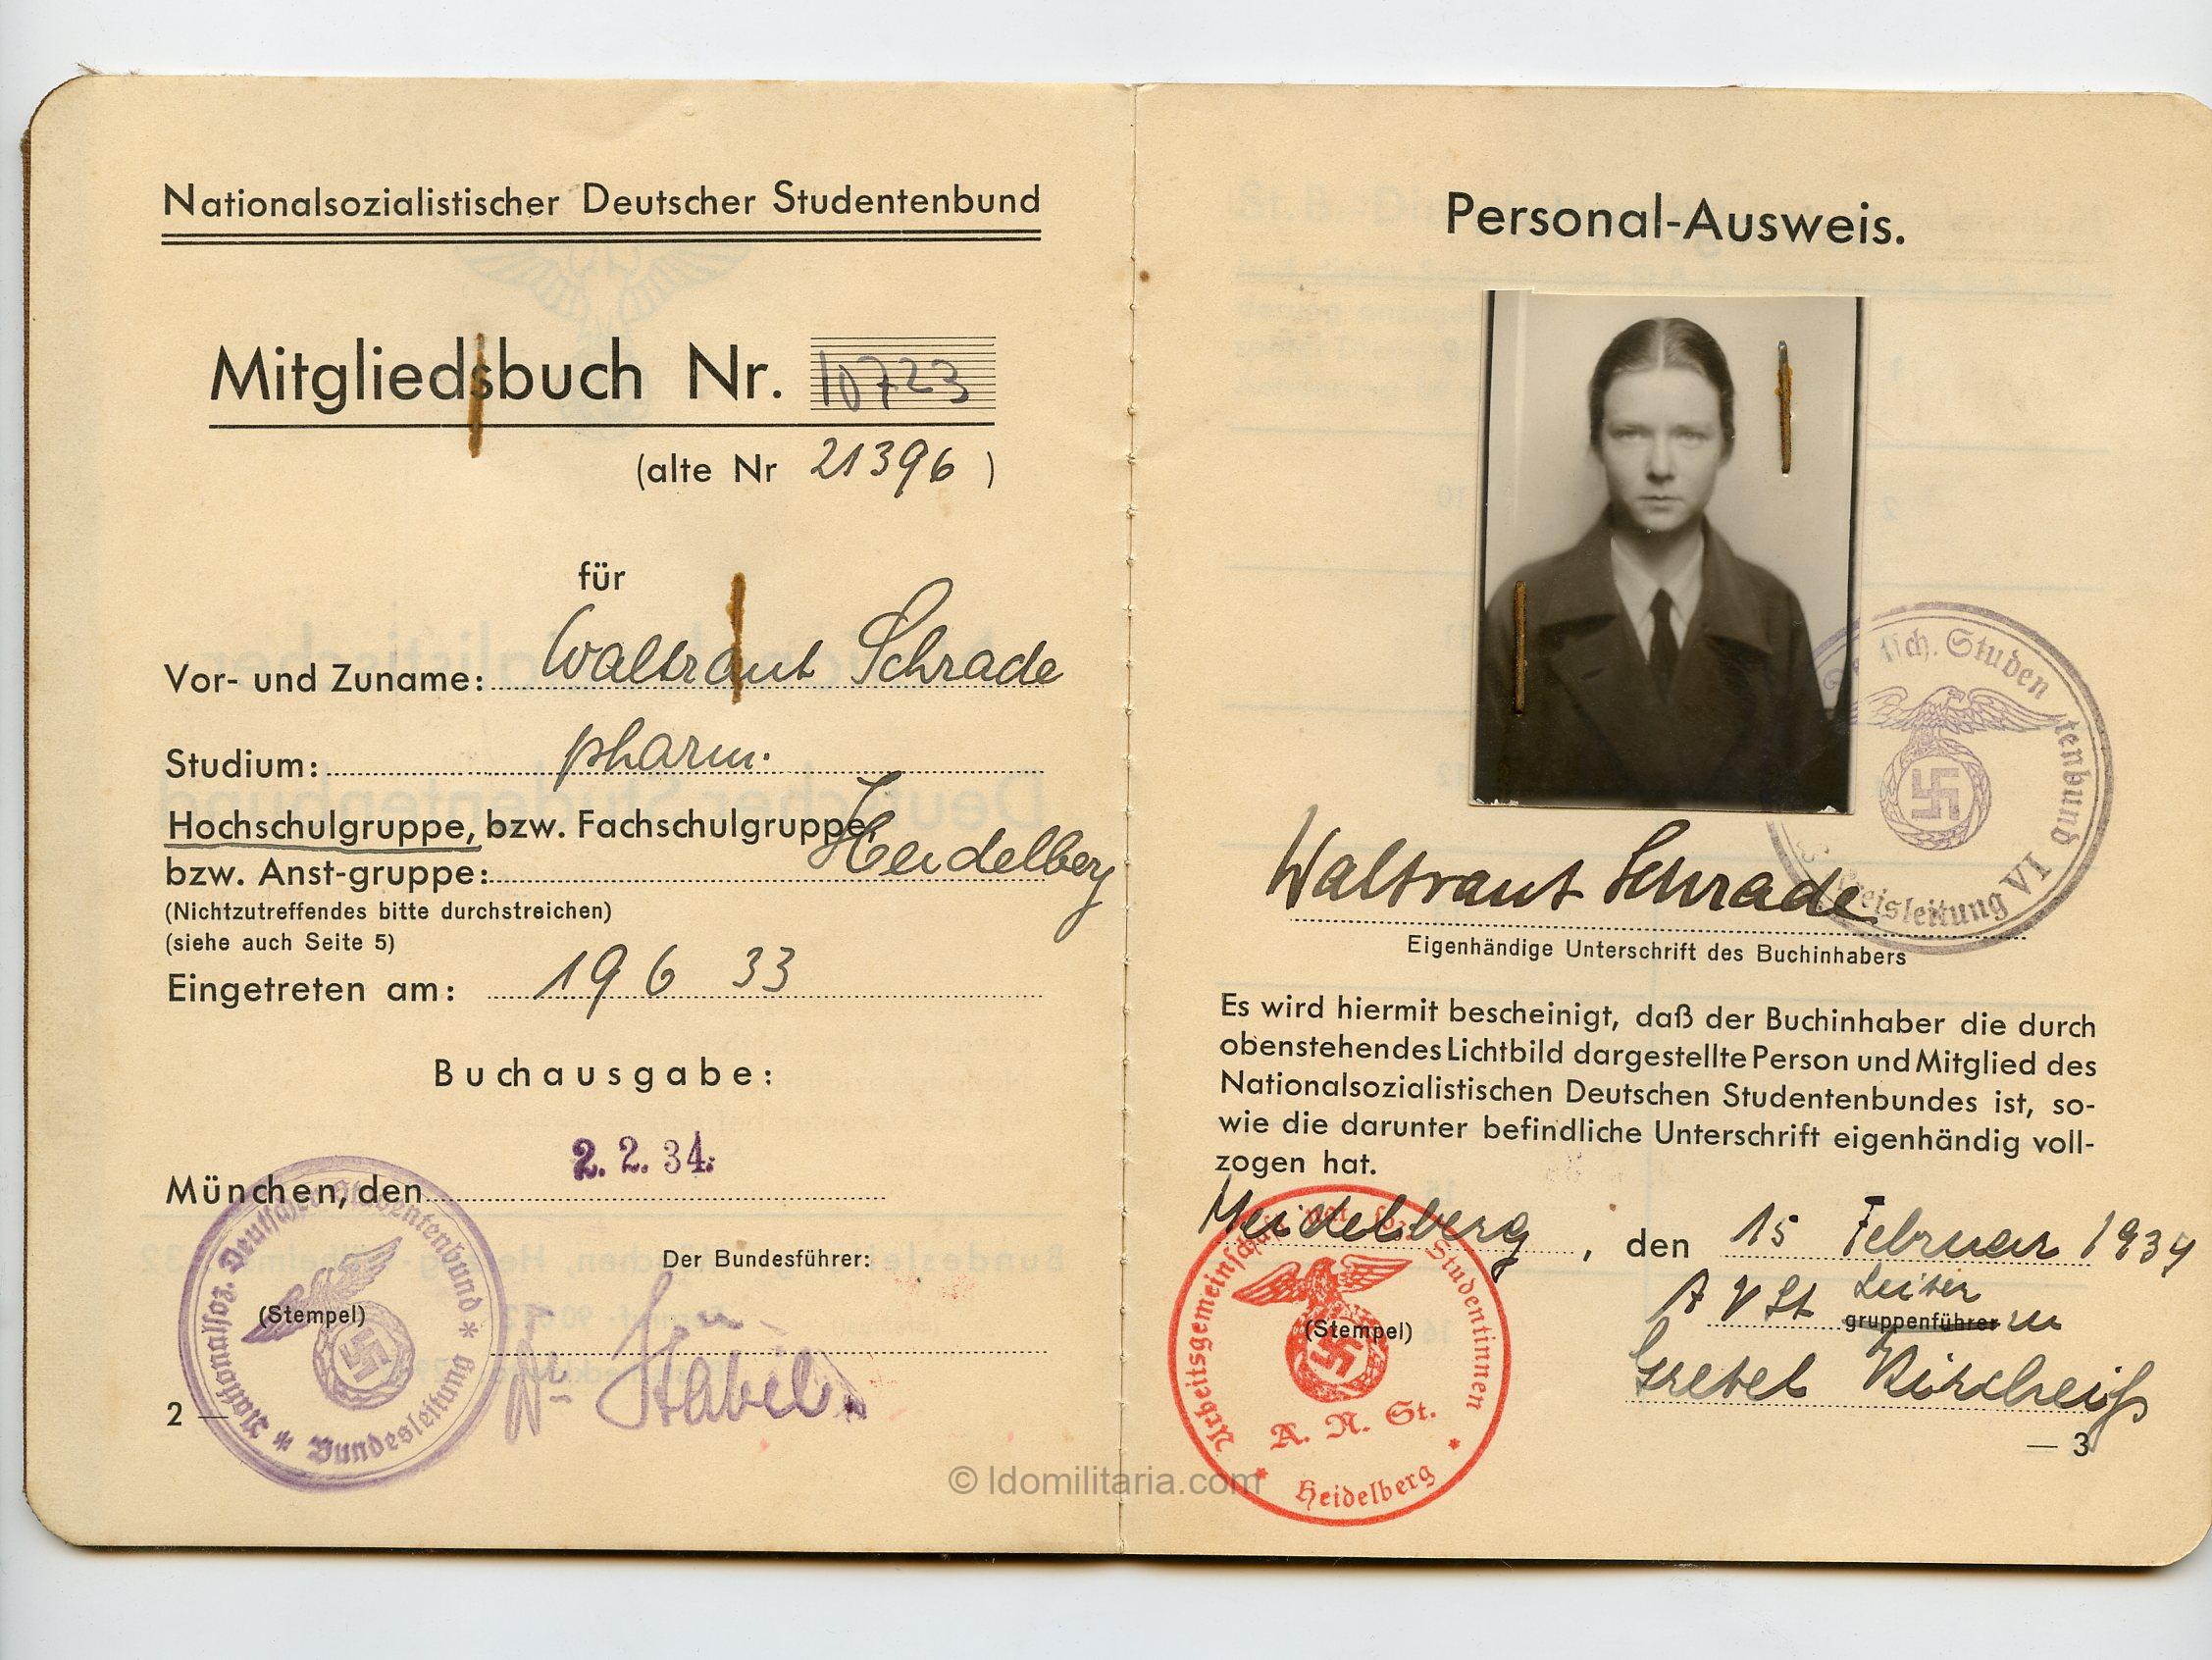 Nationalsozialistischer Deutscher Studentenbund
Mitgliedsbuch Nr. 10723
(alte Nr 21396 )
für
Vor- und Zuname: Waltraut Schrade
Studium: pharm.
Hochschulgruppe, bzw. Fachschulgruppe,
bzw. Anst-gruppe: Heidelberg
(Nichtzutreffendes bitte durchstreichen)
(siehe auch Seite 5)
Eingetreten am: 19 6 33
Buchausgabe:
München, den 2. 2. 34.
Der Bundesführer:
(Stempel)
Dr. Stäbel
Nationalsoz. Deutscher Studentenbund * Bundesleitung *
2 —
Personal-Ausweis.
tsch. Studentenbund
Kreisleitung VI
Waltraut Schrade
Eigenhändige Unterschrift des Buchinhabers
Es wird hiermit bescheinigt, daß der Buchinhaber die durch
obenstehendes Lichtbild dargestellte Person und Mitglied des
Nationalsozialistischen Deutschen Studentenbundes ist, so-
wie die darunter befindliche Unterschrift eigenhändig voll-
zogen hat.
Heidelberg , den 15 Februar 1934
Leiter
gruppenführer in
(Stempel)
Gretel
Arbeitsgemeinschaft nat. soz. Studentinnen
A. N. St.
* Heidelberg *
— 3
© ldomilitaria.com